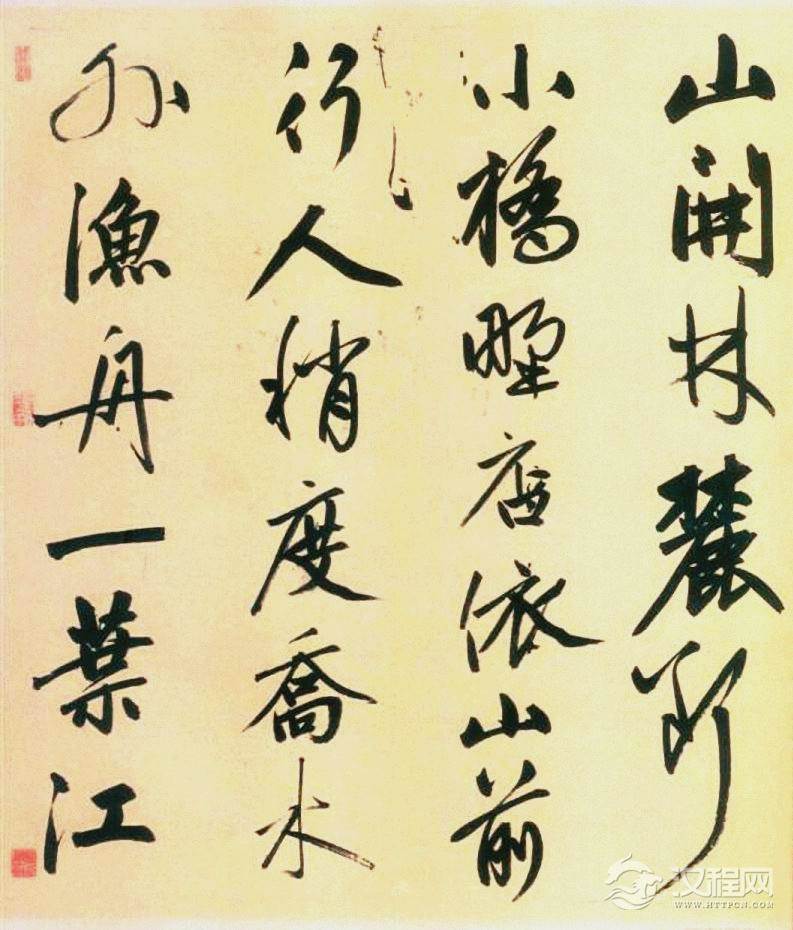 山開林麓斷
小橋野店依山前
行人稍度喬木
外漁舟一葉江
汉程网
WWW.HTTPCN.COM